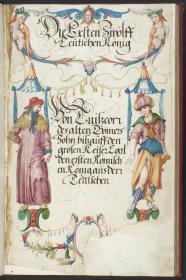 Die Ersten Zwölff
Teutschen König
Von Tuiscon
des alten Gomers
Sohn biß auff den
großen Keiser Carl
den ersten Römisch
en König aus den
Teutschen